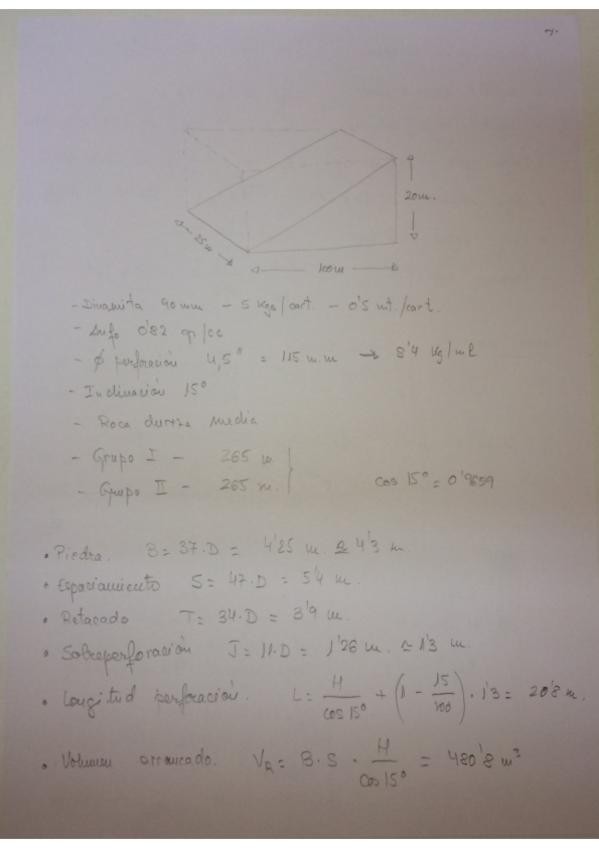 20 m.
25 m
100 m
- Dinamita 90 mm - 5 kgs/cart. - 0'5 mt./cart.
- Anfo 0'82 gr/cc
- Ø perforación 4,5" = 115 m.m → 8'4 kg/ml
- Inclinación 15º
- Roca dureza media
- Grupo I - 265 m.
- Grupo II - 265 m.
cos 15º = 0'9659
• Piedra. B = 37·D = 4'25 m. ≅ 4'3 m
• Espaciamiento S = 47·D = 5'4 m.
• Retacado T = 34·D = 3'9 m.
• Sobreperforación J = 11·D = 1'26 m. ≃ 1'3 m.
• Longitud perforación. L = H / cos 15º + (1 - 15/100) · 1'3 = 20'8 m.
• Volumen arrancado. VR = B · S · H / cos 15º = 480'8 m³